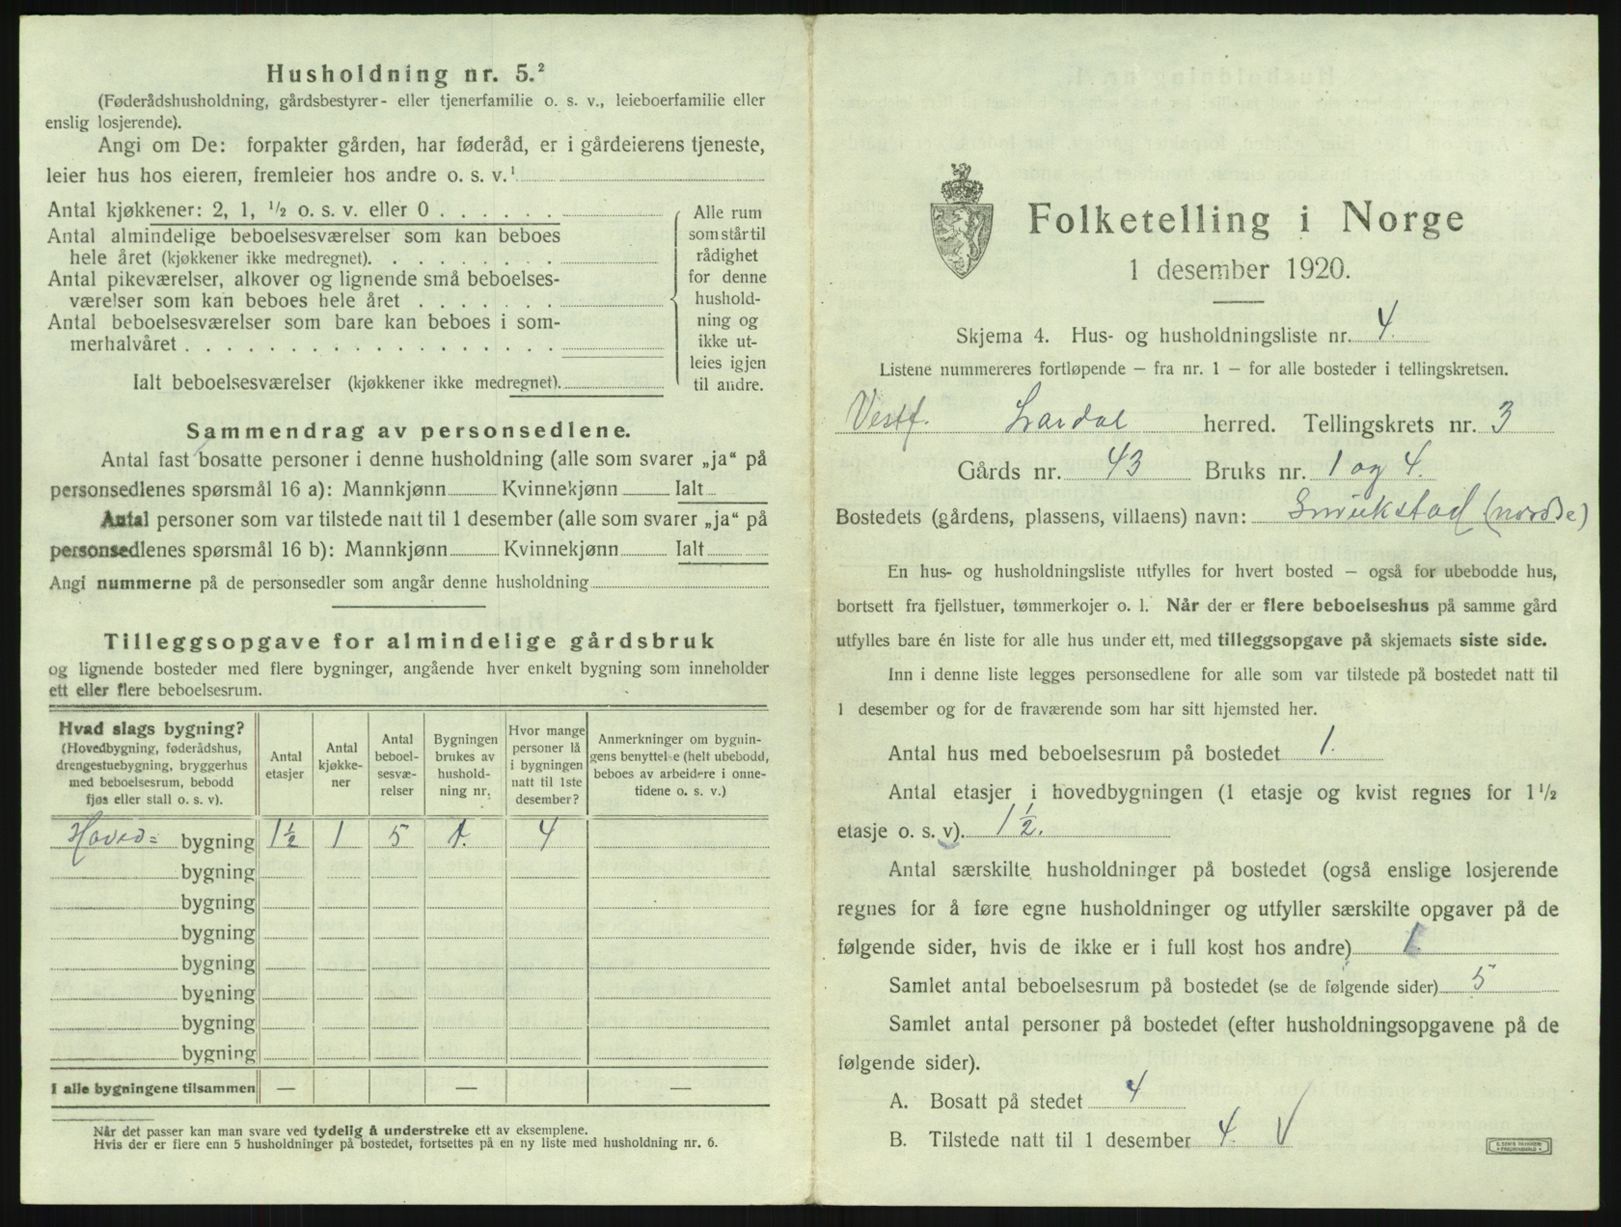 Husholdning nr. 5.²
(Føderådshusholdning, gårdsbestyrer- eller tjenerfamilie o. s. v., leieboerfamilie eller
enslig losjerende).
Angi om De: forpakter gården, har føderåd, er i gårdeierens tjeneste,
leier hus hos eieren, fremleier hos andre o. s. v.¹
Antal kjøkkener: 2, 1, ½ o. s. v. eller 0 . . . . . .
Antal almindelige beboelsesværelser som kan beboes
hele året (kjøkkener ikke medregnet). . . . . . . .
Antal pikeværelser, alkover og lignende små beboelses-
værelser som kan beboes hele året . . . . . . .
Antal beboelsesværelser som bare kan beboes i som-
merhalvåret . . . . . . . . . . . . . . . . .
Ialt beboelsesværelser (kjøkkener ikke medregnet).
Alle rum
som står til
rådighet
for denne
hushold-
ning og
ikke ut-
leies igjen
til andre.
Sammendrag av personsedlene.
Antal fast bosatte personer i denne husholdning (alle som svarer „ja“ på
personsedlenes spørsmål 16 a): Mannkjønn Kvinnekjønn Ialt
Antal personer som var tilstede natt til 1 desember (alle som svarer „ja“ på
personsedlenes spørsmål 16 b): Mannkjønn Kvinnekjønn Ialt
Angi nummerne på de personsedler som angår denne husholdning
Tilleggsopgave for almindelige gårdsbruk
og lignende bosteder med flere bygninger, angående hver enkelt bygning som inneholder
ett eller flere beboelsesrum.
Hvad slags bygning?
(Hovedbygning, føderådshus,
drengestuebygning, bryggerhus
med beboelsesrum, bebodd
fjøs eller stall o. s. v).
Antal
etasjer
Antal
kjøkke-
ner
Antal
beboel-
sesvæ-
relser
Bygningen
brukes av
hushold-
ning nr.
Hvor mange
personer lå
i bygningen
natt til 1ste
desember?
Anmerkninger om bygnin-
gens benyttel e (helt ubebodd,
beboes av arbeidere i onne-
tidene o. s. v.)
Hoved= bygning 1½ 1 5 1. 4
bygning
bygning
bygning
bygning
bygning
bygning
bygning
I alle bygningene tilsammen — — —
Når det passer kan man svare ved tydelig å understreke ett av eksemplene.
Hvis der er flere enn 5 husholdninger på bostedet, fortsettes på en ny liste med husholdning nr. 6.
Folketelling i Norge
1 desember 1920.
Skjema 4. Hus- og husholdningsliste nr. 4.
Listene nummereres fortløpende — fra nr. 1 — for alle bosteder i tellingskretsen.
Vestf. Lardal herred. Tellingskrets nr. 3
Gårds nr. 43 Bruks nr. 1 og 4.
Bostedets (gårdens, plassens, villaens) navn: (nordre)
En hus- og husholdningsliste utfylles for hvert bosted — også for ubebodde hus,
bortsett fra fjellstuer, tømmerkojer o. l. Når der er flere beboelseshus på samme gård
utfylles bare én liste for alle hus under ett, med tilleggsopgave på skjemaets siste side.
Inn i denne liste legges personsedlene for alle som var tilstede på bostedet natt til
1 desember og for de fraværende som har sitt hjemsted her.
Antal hus med beboelsesrum på bostedet 1.
Antal etasjer i hovedbygningen (1 etasje og kvist regnes for 1½
etasje o. s. v). 1½.
Antal særskilte husholdninger på bostedet (også enslige losjerende
regnes for å føre egne husholdninger og utfyller særskilte opgaver på de
følgende sider, hvis de ikke er i full kost hos andre) 1.
Samlet antal beboelsesrum på bostedet (se de følgende sider) 5
Samlet antal personer på bostedet (efter husholdningsopgavene på de
følgende sider).
A. Bosatt på stedet 4
B. Tilstede natt til 1 desember 4. V